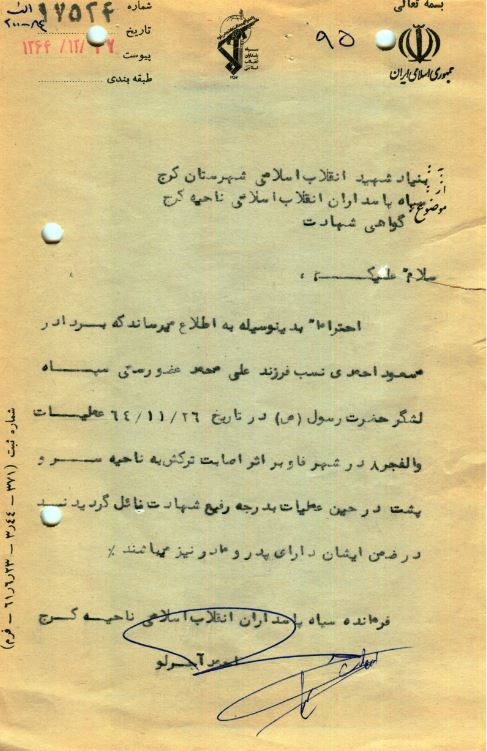 بسمه تعالی
جمهوری اسلامی ایران
۹۵
شماره ۱۷۵۲۴
تاریخ
پیوست
طبقه بندی
به: بنیاد شهید انقلاب اسلامی شهرستان کرج
از: سپاه پاسداران انقلاب اسلامی ناحیه کرج
موضوع: گواهی شهادت
سلام علیکم،
احتراما" بدینوسیله به اطلاع میرساند که برادر
مسعود احمدی نسب فرزند علی محمد عضو رسمی سپاه
لشگر حضرت رسول (ص) در تاریخ ۶۴/۱۱/۲۶ عملیات
والفجر۸ در شهر فاو بر اثر اصابت ترکش به ناحیه سر و
پشت در حین عملیات بدرجه رفیع شهادت نائل گردیدند
در ضمن ایشان دارای پدر و مادر نیز میباشند ٪
فرمانده سپاه پاسداران انقلاب اسلامی ناحیه کرج
شماره ثبت (۳۷۱ – ۳٫۴۴ – ۶۱٫۶٫۲۳ – فرم)